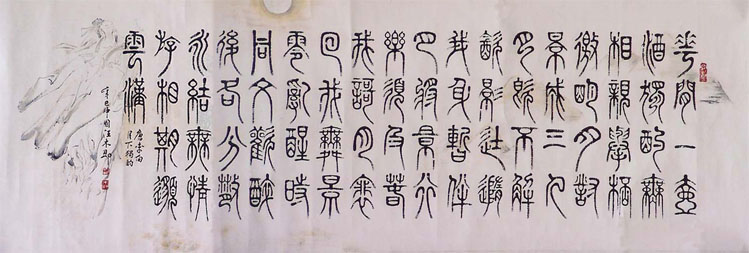 華間一壺
酒獨酌無
相親舉杯
邀明月對
景成三人
月既不解
飲影徒隨
我身暫伴
月將景行
樂須及春
我謌月裵
回我舞景
零亂醒時
同交歡醉
後各分散
永結無情
游相期邈
雲漢
唐李白
月下獨酌
辛巳年